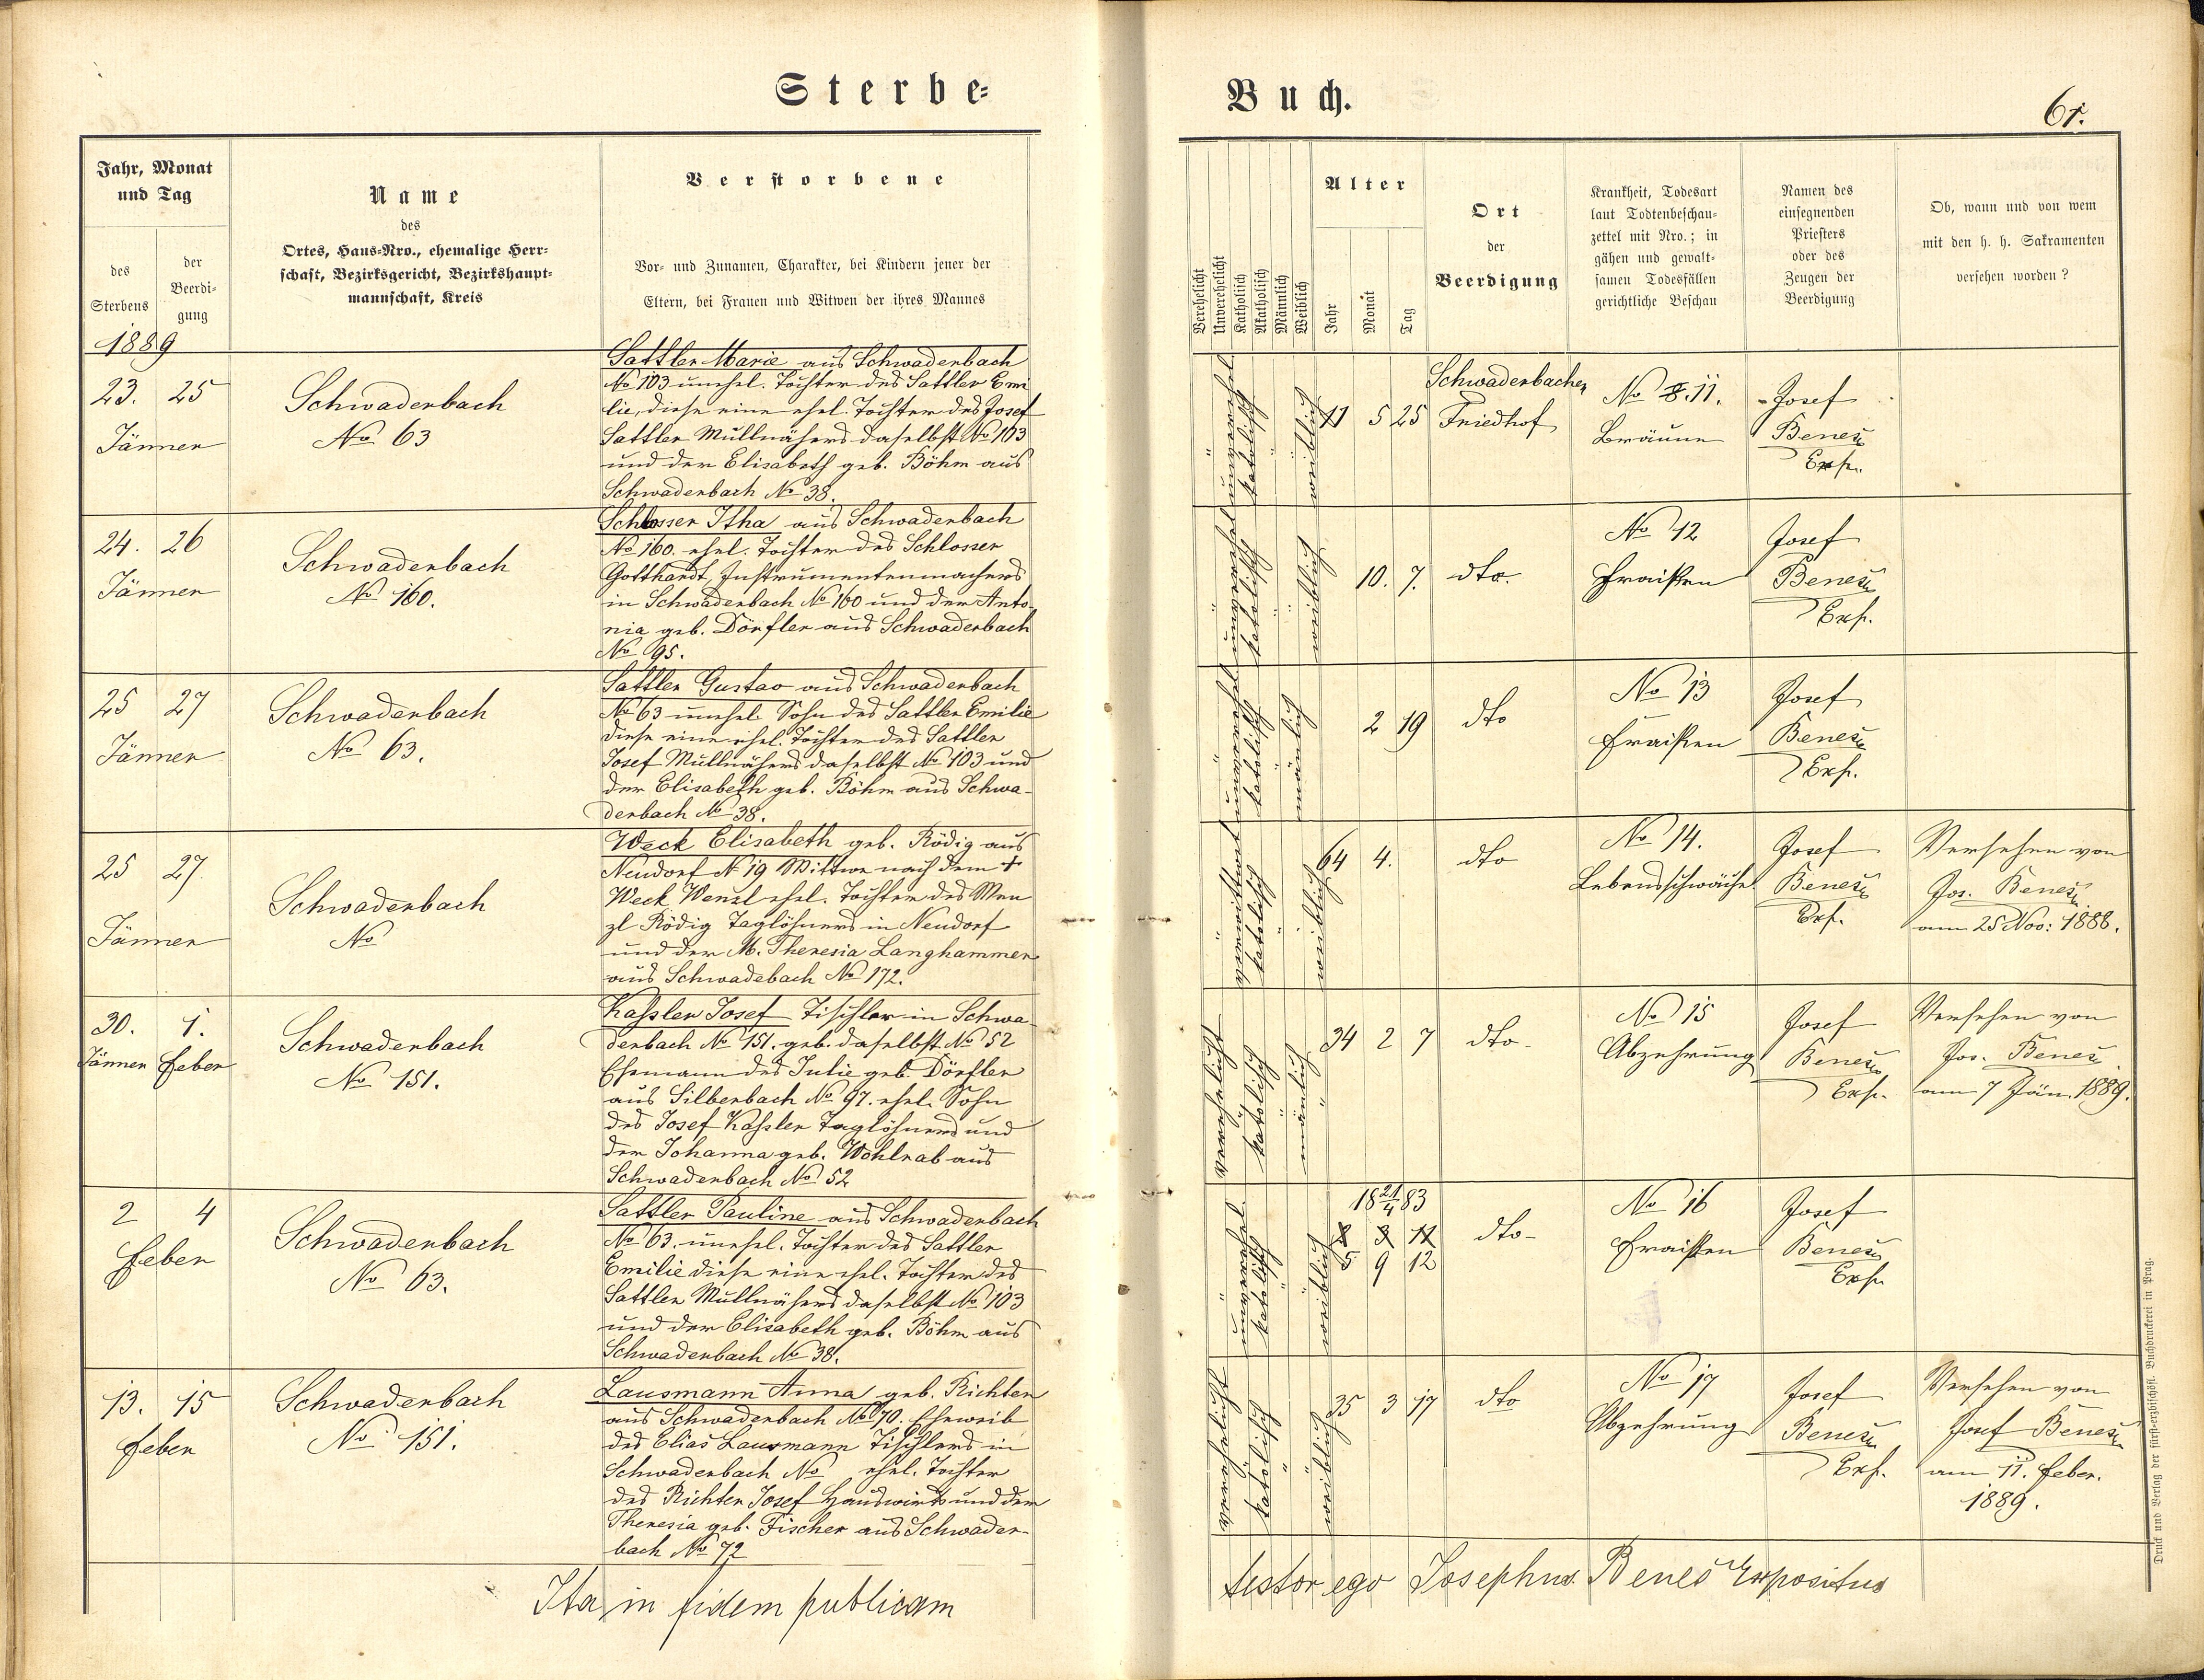 Sterbe=
Buch.
61.
Jahr, Monat
und Tag
des
Sterbens
der
Beerdi=
gung
Name
des
Ortes, Haus=Nro., ehemalige Herr=
schaft, Bezirksgericht, Bezirkshaupt=
mannschaft, Kreis
Verstorbene
Vor= und Zunamen, Charakter, bei Kindern jener der
Eltern, bei Frauen und Witwen der ihres Mannes
Verehelicht
Unverehelicht
Katholisch
Akatholisch
Männlich
Weiblich
Alter
Jahr
Monat
Tag
Ort
der
Beerdigung
Krankheit, Todesart
laut Todtenbeschau=
zettel mit Nro.; in
gähen und gewalt=
samen Todesfällen
gerichtliche Beschau
Namen des
einsegnenden
Priesters
oder des
Zeugen der
Beerdigung
Ob, wann und von wem
mit den h. h. Sakramenten
versehen worden?
1889
23. 25
Jänner
Schwaderbach
No 63
Sattler Marie aus Schwaderbach
No 103 unehel. Tochter des Sattler Emi
lie, diese eine ehel. Tochter des Josef
Sattler Müllnähers daselbst No 103
und der Elisabeth geb. Böhm aus
Schwaderbach No 38.
unverehel
katolisch
weiblich
11 5 25
Schwaderbacher
Friedhof
No 8.11.
Bräune
Josef
Beneš
Exp.
24. 26
Jänner
Schwaderbach
No 160.
Schlosser Itha aus Schwaderbach
No 160. ehel. Tochter des Schlosser
Gotthardt, Instrumentenmachers
in Schwaderbach No 160 und der Anto
nia geb. Dörfler aus Schwaderbach
No 95.
unverehel
katolisch
weiblich
10. 7.
dto.
No 12
Fraisen
Josef
Beneš
Exp.
25 27
Jänner
Schwaderbach
No 63.
Sattler Gustav aus Schwaderbach
No 63 unehel. Sohn des Sattler Emilie
diese eine ehel. Tochter des Sattler
Josef Müllnähers daselbst No 103 und
der Elisabeth geb. Böhm aus Schwa-
derbach No 38.
unverehel
katolisch
mänlich
2 19
dto
No 13
Fraisen
Josef
Beneš
Exp.
25 27.
Jänner
Schwaderbach
No
Weck Elisabeth geb. Rödig aus
Neudorf No 19 Wittwe nach dem +
Weck Wenzl ehel. Tochter des Wen
zl Rödig Taglöhners in Neudorf
und der M. Theresia Langhammer
aus Schwadebach No 172.
verwittwet
katolisch
weiblich
64 4.
dto
No 14.
Lebensschwäche
Josef
Beneš
Exp.
Versehen von
Jos. Beneš
am 25 Nov: 1888.
30. 1.
Jänner Feber
Schwaderbach
No 151.
Kaßler Josef Tischler in Schwa
derbach No 151. geb. daselbst No 52
Ehemann der Julie geb. Dörfler
aus Silberbach No 97. ehel. Sohn
des Josef Kaßler Taglöhners und
der Johanna geb. Wohlrab aus
Schwaderbach No 52
verehelicht
katolisch
mänlich
34 2 7
dto-
No 15
Abzehrung
Josef
Beneš
Exp.
Versehen von
Jos. Beneš
am 7 Jän. 1889.
2 4
Feber
Schwaderbach
No 63.
Sattler Pauline aus Schwaderbach
No 63. unehel. Tochter des Sattler
Emilie diese eine ehel. Tochter des
Sattler Müllnähers daselbst No 103
und der Elisabeth geb. Böhm aus
Schwaderbach No 38.
unverehel.
katolisch
weiblich
18 21/4 83
5 9 12
dto-
No 16
Fraisen
Josef
Beneš
Exp.
13. 15
Feber
Schwaderbach
No 151.
Lausmann Anna geb. Richter
aus Schwaderbach No 70. Eheweib
des Elias Lausmann Tischlers in
Schwaderbach No ehel. Tochter
des Richter Josef Hauswirts und der
Theresia geb. Fischer aus Schwader-
bach No 72
verehelicht
katolisch
weiblich
35 3 17
dto
No 17
Abzehrung
Josef
Beneš
Exp.
Versehen von
Josef Beneš
am 11. Feber.
1889.
Ita in fidem publicam
testor ego Josephus Beneš Expositus
Druck und Verlag der fürst=erzbischöfl. Buchdruckerei in Prag.